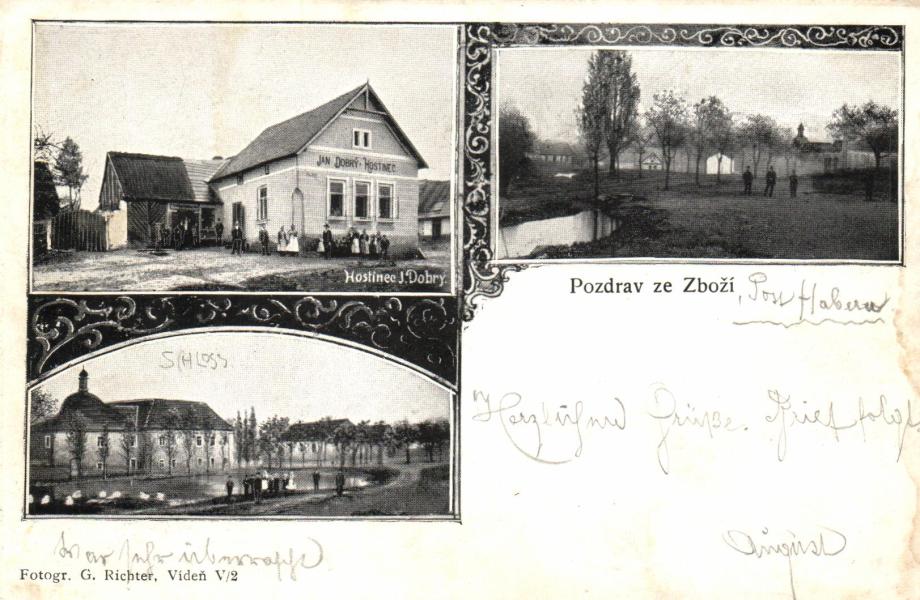 JAN DOBRÝ · HOSTINEC
Hostinec J. Dobrý.
Pozdrav ze Zboží, Post Habern
SCHLOSS
Herzlichen Grüße. Brief folgt
August
War sehr überrascht
Fotogr. G. Richter, Vídeň V/2